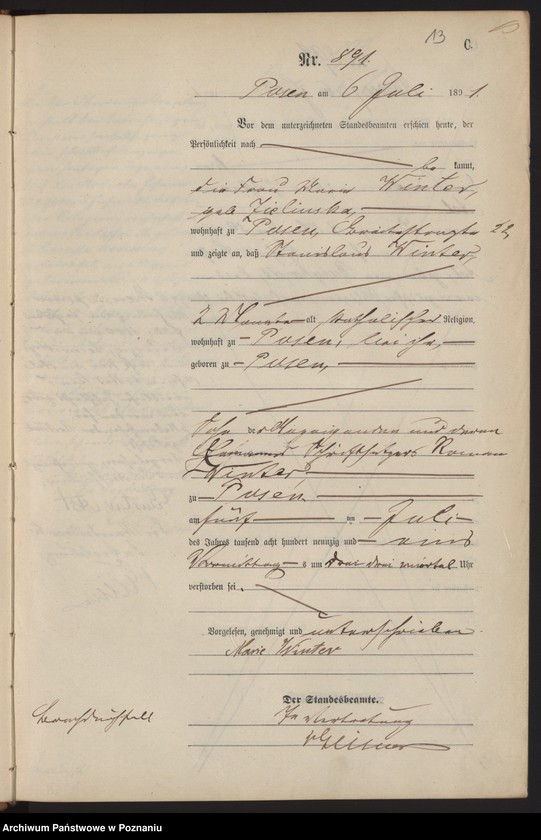 13
C.
Nr. 891.
Posen am 6 Juli 1891.
Vor dem unterzeichneten Standesbeamten erschien heute, der
Persönlichkeit nach
be kannt,
die Frau Marie Winter,
geb. Zielinska,
wohnhaft zu Posen, 22
und zeigte an, daß Stanislaus Winter,
2 alt katholischer Religion,
wohnhaft zu Posen, bei ihr,
geboren zu Posen,
Sohn der Anzeigenden und deren
Ehemanns Schriftsetzers Roman
Winter
zu Posen
am fünf ten Juli
des Jahres tausend acht hundert neunzig und eins
Vormittags um drei viertel Uhr
verstorben sei.
Vorgelesen, genehmigt und unterschrieben
Marie Winter
Der Standesbeamte.
In Vertretung
Archiwum Państwowe w Poznaniu